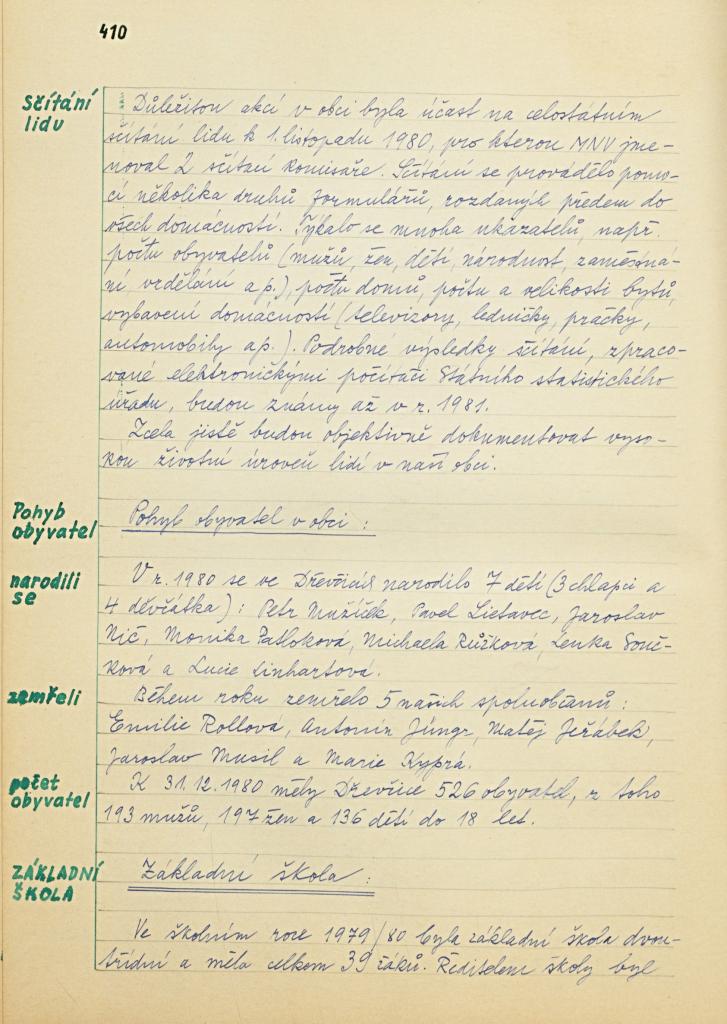 410
Sčítání
lidu
Důležitou akcí v obci byla účast na celostátním
sčítání lidu k 1. listopadu 1980, pro kterou MNV jme-
noval 2 sčítací komisaře. Sčítání se provádělo pomo-
cí několika druhů formulářů, rozdaných předem do
všech domácností. Týkalo se mnoha ukazatelů, např.
počtu obyvatelů (mužů, žen, dětí, národnost, zaměstná-
ní, vzdělání ap.), počtu domů, počtu a velikosti bytů,
vybavení domácností (televizory, ledničky, pračky,
automobily ap.). Podrobné výsledky sčítání, zpraco-
vané elektronickými počítači Státního statistického
úřadu, budou známy až v r. 1981.
Zcela jistě budou objektivně dokumentovat vyso-
kou životní úroveň lidí v naší obci.
Pohyb
obyvatel
Pohyb obyvatel v obci :
narodili
se
V r. 1980 se ve Dřevčicích narodilo 7 dětí (3 chlapci a
4 děvčátka): Petr Mužíček, Pavel Lietavec, Jaroslav
Nič, Monika Patloková, Michaela Růžková, Lenka Souč-
ková a Lucie Linhartová.
zemřeli
Během roku zemřelo 5 našich spoluobčanů :
Emilie Rollová, Antonín Jüngr, Matěj Jeřábek,
Jaroslav Musil a Marie Kyprá.
počet
obyvatel
K 31. 12. 1980 měly Dřevčice 526 obyvatel, z toho
193 mužů, 197 žen a 136 dětí do 18 let.
ZÁKLADNÍ
ŠKOLA
Základní škola :
Ve školním roce 1979/80 byla základní škola dvou-
třídní a měla celkem 39 žáků. Ředitelem školy byl